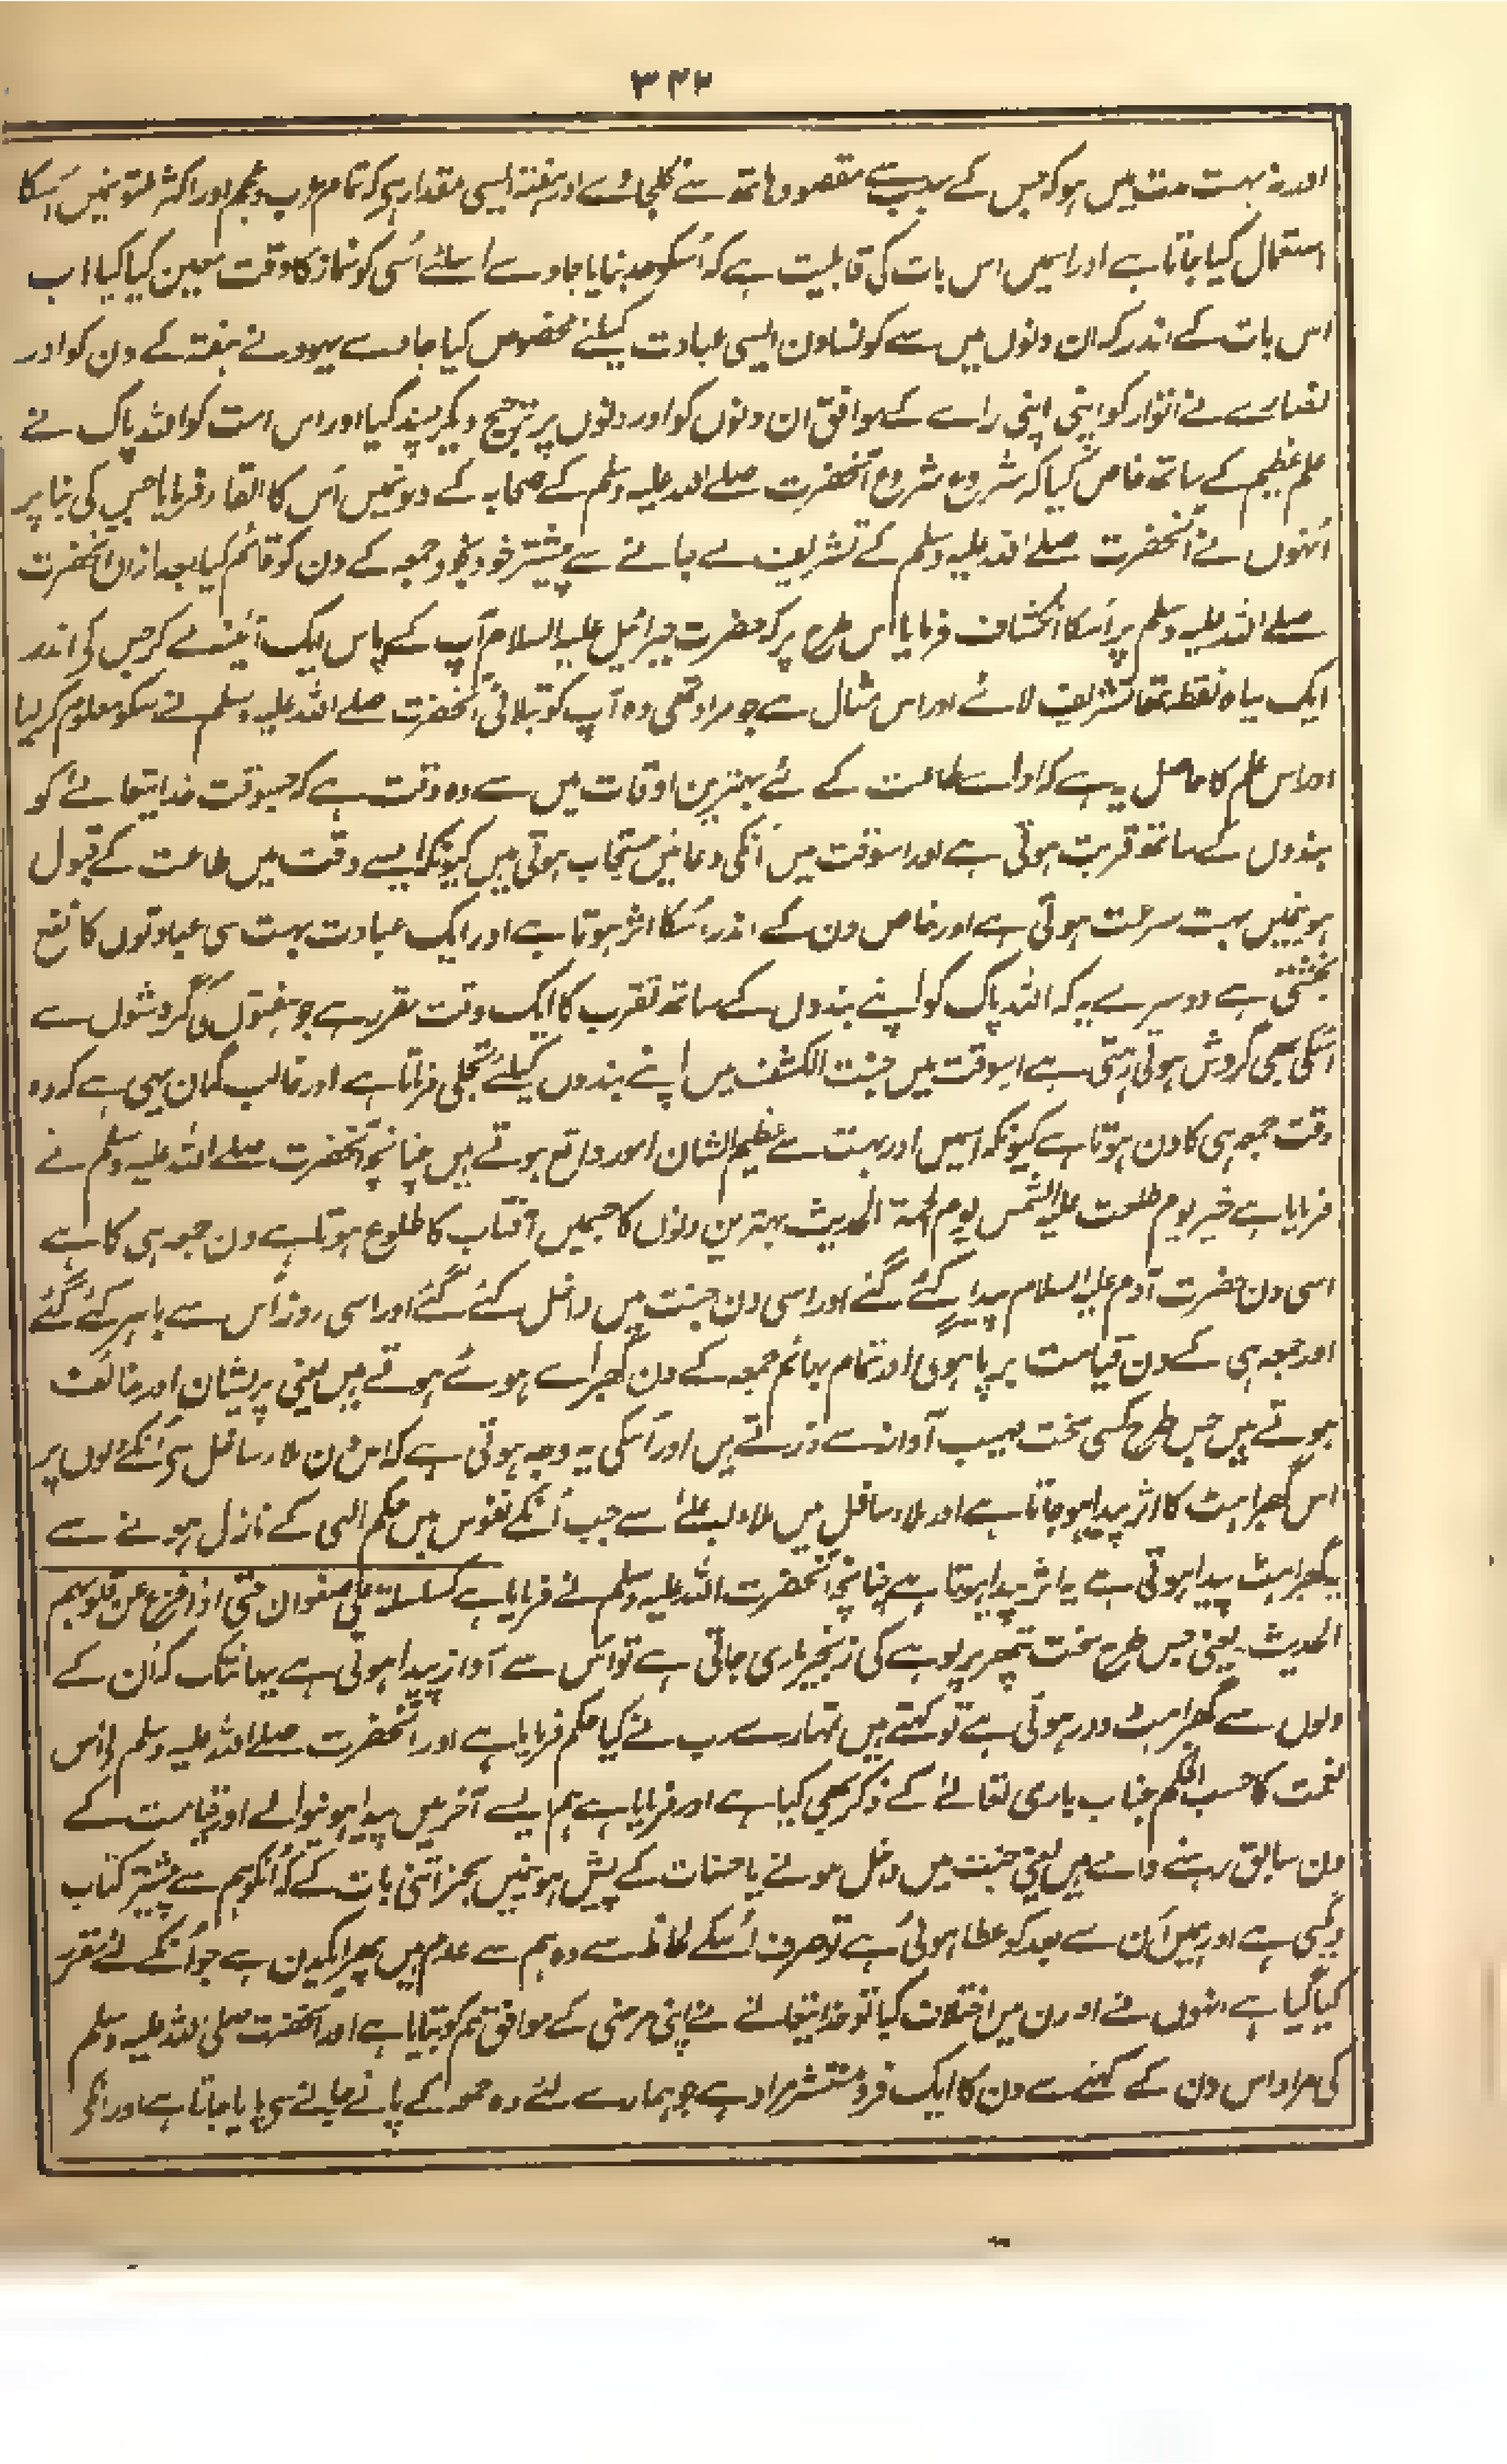 ۳۴۲
اور نہ بہت مدت میں ہو کہ جس کے سبب سے مقصود ہاتھ سے نکلجائے اور ہفتہ ایسی مقدار ہی کہ تمام عرب و عجم اور اکثر ملتونمیں اسکا
استعمال کیا جاتا ہے اور اسمیں اس بات کی قابلیت ہے کہ اُسکو حد بنایا جاوے اسلئے اُسی کو نماز کا وقت معین کیا گیا اب
اس بات کے اندر کہ ان دنوں میں سے کونسا دن ایسی عبادت کیلئے مخصوص کیا جاوے یہود نے ہفتہ کے دن کو اور
نصارے نے اتوار کو اپنی اپنی راے کے موافق ان دنوں کو اور دنوں پر ترجیح دیکر پسند کیا اور اس امت کو اللہ پاک نے
علم عظیم کے ساتھ خاص کیا کہ شروع شروع آنحضرت صلے اللہ علیہ وسلم کے صحابہ کے دلونمیں اُس کا القاء فرمایا جس کی بنا پر
اُنہوں نے آنحضرت صلے اللہ علیہ وسلم کے تشریف لے جانے سے پیشتر خود بخود جمعہ کے دن کو قائم کیا بعد ازاں آنحضرت
صلے اللہ علیہ وسلم پر اُسکا انکشاف فرمایا اس طرح پر کہ حضرت جبرائیل علیہ السلام آپ کے پاس ایک آئینہ لے کر جس کی اندر
ایک سیاہ نقطہ تھا تشریف لائے اور اس مثال سے جو مراد تھی وہ آپ کو بتلائی آنحضرت صلے اللہ علیہ وسلم نے اسکو معلوم کر لیا
اور اس علم کا حاصل یہ ہے کہ اداے طاعت کے لئے بہترین اوقات میں سے وہ وقت ہے کہ جسوقت خدا یتعالے کو
بندوں کے ساتھ قربت ہوتی ہے اور اسوقت میں اُنکی دعائیں مستجاب ہوتی ہیں کیونکہ ایسے وقت میں طاعت کے قبول
ہونیمیں بہت سرعت ہوتی ہے اور خاص دن کے اندر اُسکا اثر ہوتا ہے اور ایک عبادت بہت سی عبادتوں کا نفع
بخشتی ہے دوسرے یہ کہ اللہ پاک کو اپنے بندوں کے ساتھ تقرب کا ایک وقت مقرر ہے جو ہفتوں کی گردشوں سے
اُسکی بھی گردش ہوتی رہتی ہے اسوقت میں جنت الکشف میں اپنے بندوں کیلئے تجلی فرماتا ہے اور غالب گمان یہی ہے کہ وہ
وقت جمعہ ہی کا دن ہوتا ہے کیونکہ اسمیں اور بہت سے عظیم الشان امور واقع ہوتے ہیں چنانچہ آنحضرت صلے اللہ علیہ وسلم نے
فرمایا ہے خیر یوم طلعت علیہ الشمس یوم الجمعۃ الحدیث بہترین دنوں کا جسمیں آفتاب کا طلوع ہوتا ہے دن جمعہ ہی کا ہے
اسی دن حضرت آدم علیہ السلام پیدا کئے گئے اور اسی دن جنت میں داخل کئے گئے اور اسی روز اُس سے باہر کئے گئے
اور جمعہ ہی کے دن قیامت برپا ہو گی اور تمام بہائم جمعہ کے دن گھبراے ہوئے ہوتے ہیں یعنی پریشان اور خائف
ہوتے ہیں جس طرح کسی سخت مہیب آواز سے ڈرتے ہیں اور اُسکی یہ وجہ ہوتی ہے کہ اس دن ملاء سافل سی اُنکے دلوں پر
اس گھبراہٹ کا اثر پیدا ہو جاتا ہے اور ملاء سافل میں ملاء اعلیٰ سے جب اُنکے نفوس میں حکم الٰہی کے نازل ہونے سے
یہ گھبراہٹ پیدا ہوتی ہے یہ اثر پیدا ہوتا ہے چنانچہ آنحضرت اللہ علیہ وسلم نے فرمایا ہے کسلسلۃ علی صفوان حتی اذا فزع عن قلوبہم
الحدیث۔ یعنی جس طرح سخت پتھر پر لوہے کی زنجیر ماری جاتی ہے تو اُس سے آواز پیدا ہوتی ہے یہانتک کہ اُن کے
دلوں سے گھبراہٹ دور ہوتی ہے تو کہتے ہیں تمہارے رب نے کیا حکم فرمایا ہے اور آنحضرت صلے اللہ علیہ وسلم نے اس
نعمت کا حسب الحکم جناب باری تعالےٰ کے ذکر بھی کیا ہے اور فرمایا ہے ہم ایسے آخر میں پیدا ہونیوالے اور قیامت کے
دن سابق رہنے والے ہیں یعنی جنت میں داخل ہونے یا حسنات کے پیش ہونیمیں بجز اتنی بات کے کہ اُنکو ہم سے پیشتر کتاب
دیگئی ہے اور ہمیں اُن سے بعد کو عطا ہوئی ہے تو صرف اُسکے لحاظ سے وہ ہم سے مقدم ہیں پھر ایک دن ہے جو اُنکے لئے مقرر
کیا گیا ہے انہوں نے اور دن میں اختلاف کیا تو خدا یتعالے نے اپنی مرضی کے موافق ہم کو بتایا ہے اور آنحضرت صلی اللہ علیہ وسلم
کی مراد اس دن کے کہنے سے دن کا ایک فرد منتشر مراد ہے جو ہمارے لئے وہ جمعہ کے پانے جانے سی پایا جاتا ہے اور انکی